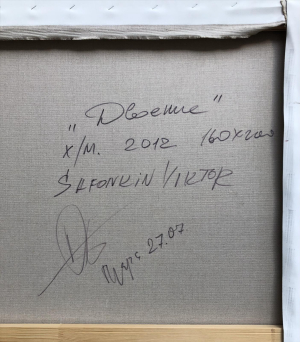 "Двоение"
х/м. 2012 160х200
SAFONKIN VIKTOR
27.07